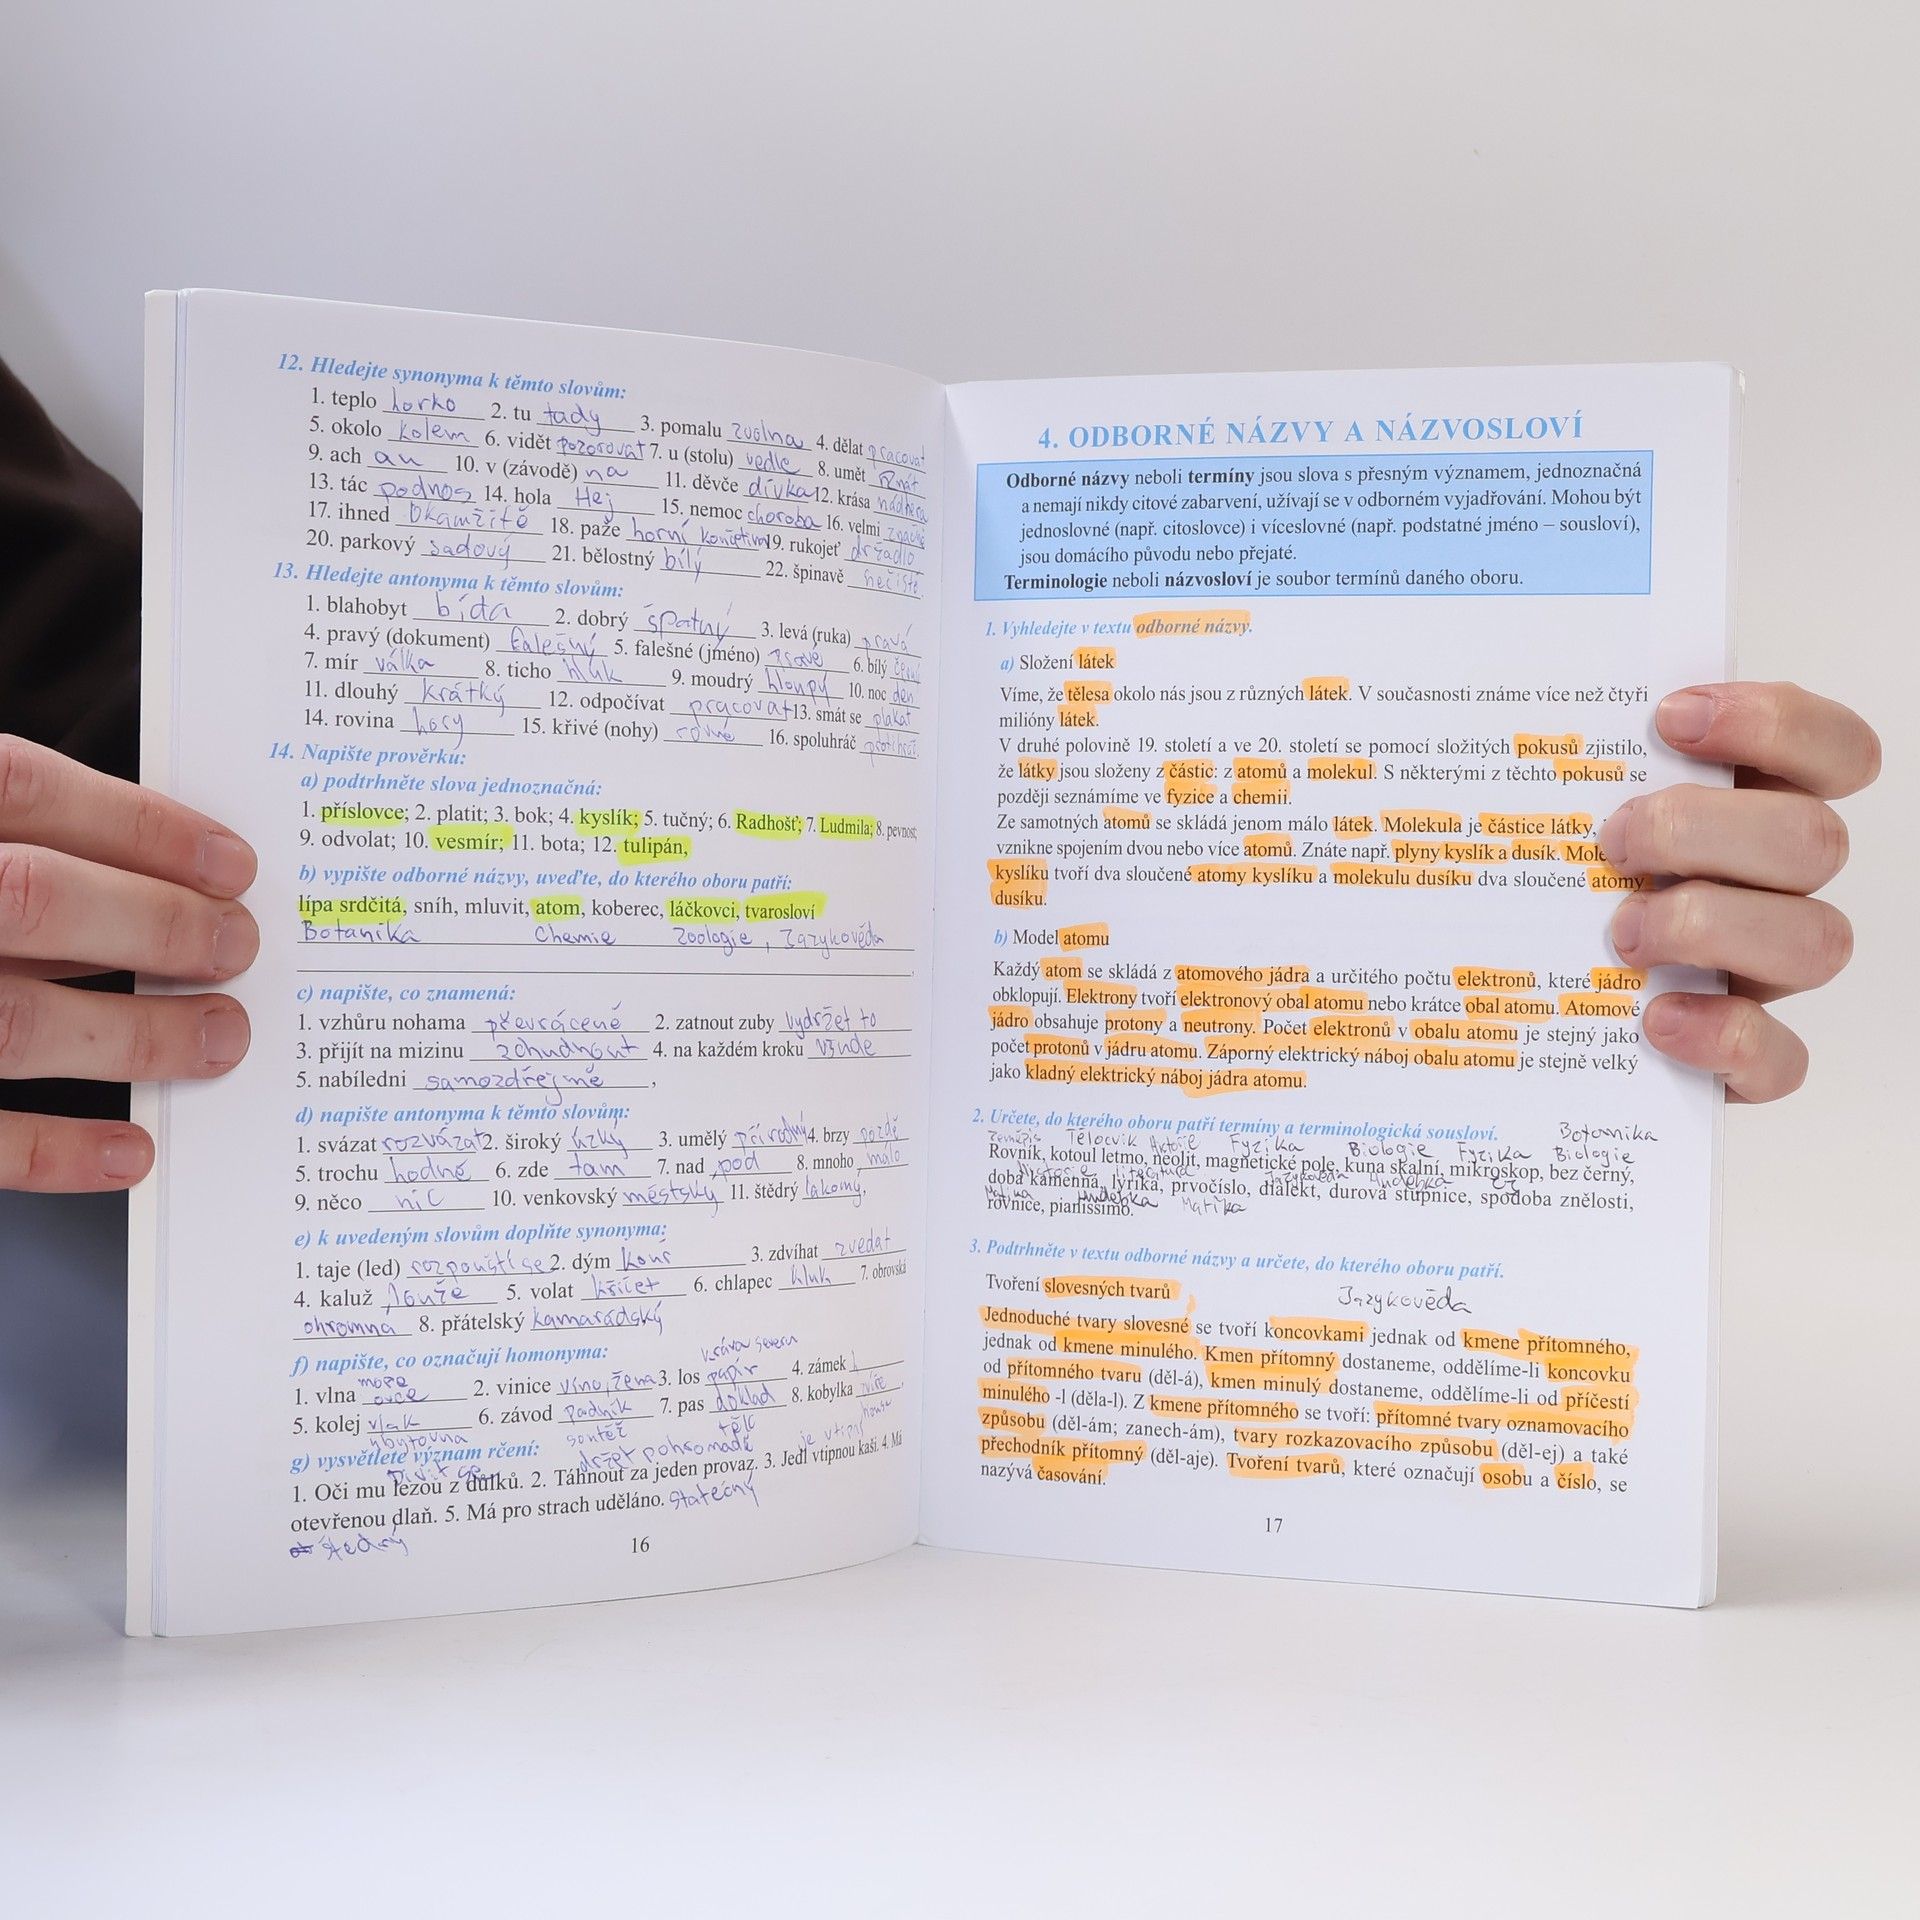 12. Hledejte synonyma k těmto slovům:
1. teplo horko 2. tu tady 3. pomalu zvolna 4. dělat pracovat
5. okolo kolem 6. vidět pozorovat 7. u (stolu) vedle 8. umět znát
9. ach au 10. v (závodě) na 11. děvče dívka 12. krása nádhera
13. tác podnos 14. hola Hej 15. nemoc choroba 16. velmi značně
17. ihned Okamžitě 18. paže horní končetina 19. rukojeť držadlo
20. parkový sadový 21. bělostný bílý 22. špinavě nečistě.
13. Hledejte antonyma k těmto slovům:
1. blahobyt bída 2. dobrý špatný 3. levá (ruka) pravá
4. pravý (dokument) falešný 5. falešné (jméno) pravé 6. bílý černý
7. mír válka 8. ticho hluk 9. moudrý hloupý 10. noc den
11. dlouhý krátký 12. odpočívat pracovat 13. smát se plakat
14. rovina hory 15. křivé (nohy) rovné 16. spoluhráč protihráč
14. Napište prověrku:
a) podtrhněte slova jednoznačná:
1. příslovce; 2. platit; 3. bok; 4. kyslík; 5. tučný; 6. Radhošť; 7. Ludmila; 8. pevnost;
9. odvolat; 10. vesmír; 11. bota; 12. tulipán,
b) vypište odborné názvy, uveďte, do kterého oboru patří:
lípa srdčitá, sníh, mluvit, atom, koberec, láčkovci, tvarosloví
Botanika Chemie Zoologie, Jazykověda
c) napište, co znamená:
1. vzhůru nohama převráceně 2. zatnout zuby vydržet to
3. přijít na mizinu zchudnout 4. na každém kroku všude
5. nabíledni samozdřejmě,
d) napište antonyma k těmto slovům:
1. svázat rozvázat 2. široký úzký 3. umělý přírodný 4. brzy pozdě
5. trochu hodně 6. zde tam 7. nad pod 8. mnoho málo
9. něco nic 10. venkovský městský 11. štědrý lakomý,
e) k uvedeným slovům doplňte synonyma:
1. taje (led) rozpouští se 2. dým kouř 3. zdvíhat zvedat
4. kaluž louže 5. volat křičet 6. chlapec kluk 7. obrovská
ohromna 8. přátelský kamarádský
f) napište, co označují homonyma:
kráva severu
moře
1. vlna ovce 2. vinice víno, žena 3. los papír 4. zámek
5. kolej vlak 6. závod podnik 7. pas doklad 8. kobylka zvíře
ubytovna soutěž tělo house
g) vysvětlete význam rčení:
Diví se držet pohromadě je vtipný
1. Oči mu lezou z důlků. 2. Táhnout za jeden provaz. 3. Jedl vtipnou kaši. 4. Má
otevřenou dlaň. 5. Má pro strach uděláno. statečný
štedrý
16
4. ODBORNÉ NÁZVY A NÁZVOSLOVÍ
Odborné názvy neboli termíny jsou slova s přesným významem, jednoznačná
a nemají nikdy citové zabarvení, užívají se v odborném vyjadřování. Mohou být
jednoslovné (např. citoslovce) i víceslovné (např. podstatné jméno – sousloví),
jsou domácího původu nebo přejaté.
Terminologie neboli názvosloví je soubor termínů daného oboru.
1. Vyhledejte v textu odborné názvy.
a) Složení látek
Víme, že tělesa okolo nás jsou z různých látek. V současnosti známe více než čtyři
milióny látek.
V druhé polovině 19. století a ve 20. století se pomocí složitých pokusů zjistilo,
že látky jsou složeny z částic: z atomů a molekul. S některými z těchto pokusů se
později seznámíme ve fyzice a chemii.
Ze samotných atomů se skládá jenom málo látek. Molekula je částice látky,
vznikne spojením dvou nebo více atomů. Znáte např. plyny kyslík a dusík. Mole
kyslíku tvoří dva sloučené atomy kyslíku a molekulu dusíku dva sloučené atomy
dusíku.
b) Model atomu
Každý atom se skládá z atomového jádra a určitého počtu elektronů, které jádro
obklopují. Elektrony tvoří elektronový obal atomu nebo krátce obal atomu. Atomové
jádro obsahuje protony a neutrony. Počet elektronů v obalu atomu je stejný jako
počet protonů v jádru atomu. Záporný elektrický náboj obalu atomu je stejně velký
jako kladný elektrický náboj jádra atomu.
2. Určete, do kterého oboru patří termíny a terminologická sousloví.
Zeměpis Tělocvik Historie Fyzika Biologie Fyzika Biologie Botanika
Rovník, kotoul letmo, neolit, magnetické pole, kuna skalní, mikroskop, bez černý,
Historie literatura Jazykověda Hudebka ČJ
doba kamenná, lyrika, prvočíslo, dialekt, durová stupnice, spodoba znělosti,
Matika Hudebka Matika
rovnice, pianissimo.
3. Podtrhněte v textu odborné názvy a určete, do kterého oboru patří.
Tvoření slovesných tvarů Jazykověda
Jednoduché tvary slovesné se tvoří koncovkami jednak od kmene přítomného,
jednak od kmene minulého. Kmen přítomný dostaneme, oddělíme-li koncovku
od přítomného tvaru (děl-á), kmen minulý dostaneme, oddělíme-li od příčestí
minulého -l (děla-l). Z kmene přítomného se tvoří: přítomné tvary oznamovacího
způsobu (děl-ám; zanech-ám), tvary rozkazovacího způsobu (děl-ej) a také
přechodník přítomný (děl-aje). Tvoření tvarů, které označují osobu a číslo, se
nazývá časování.
17